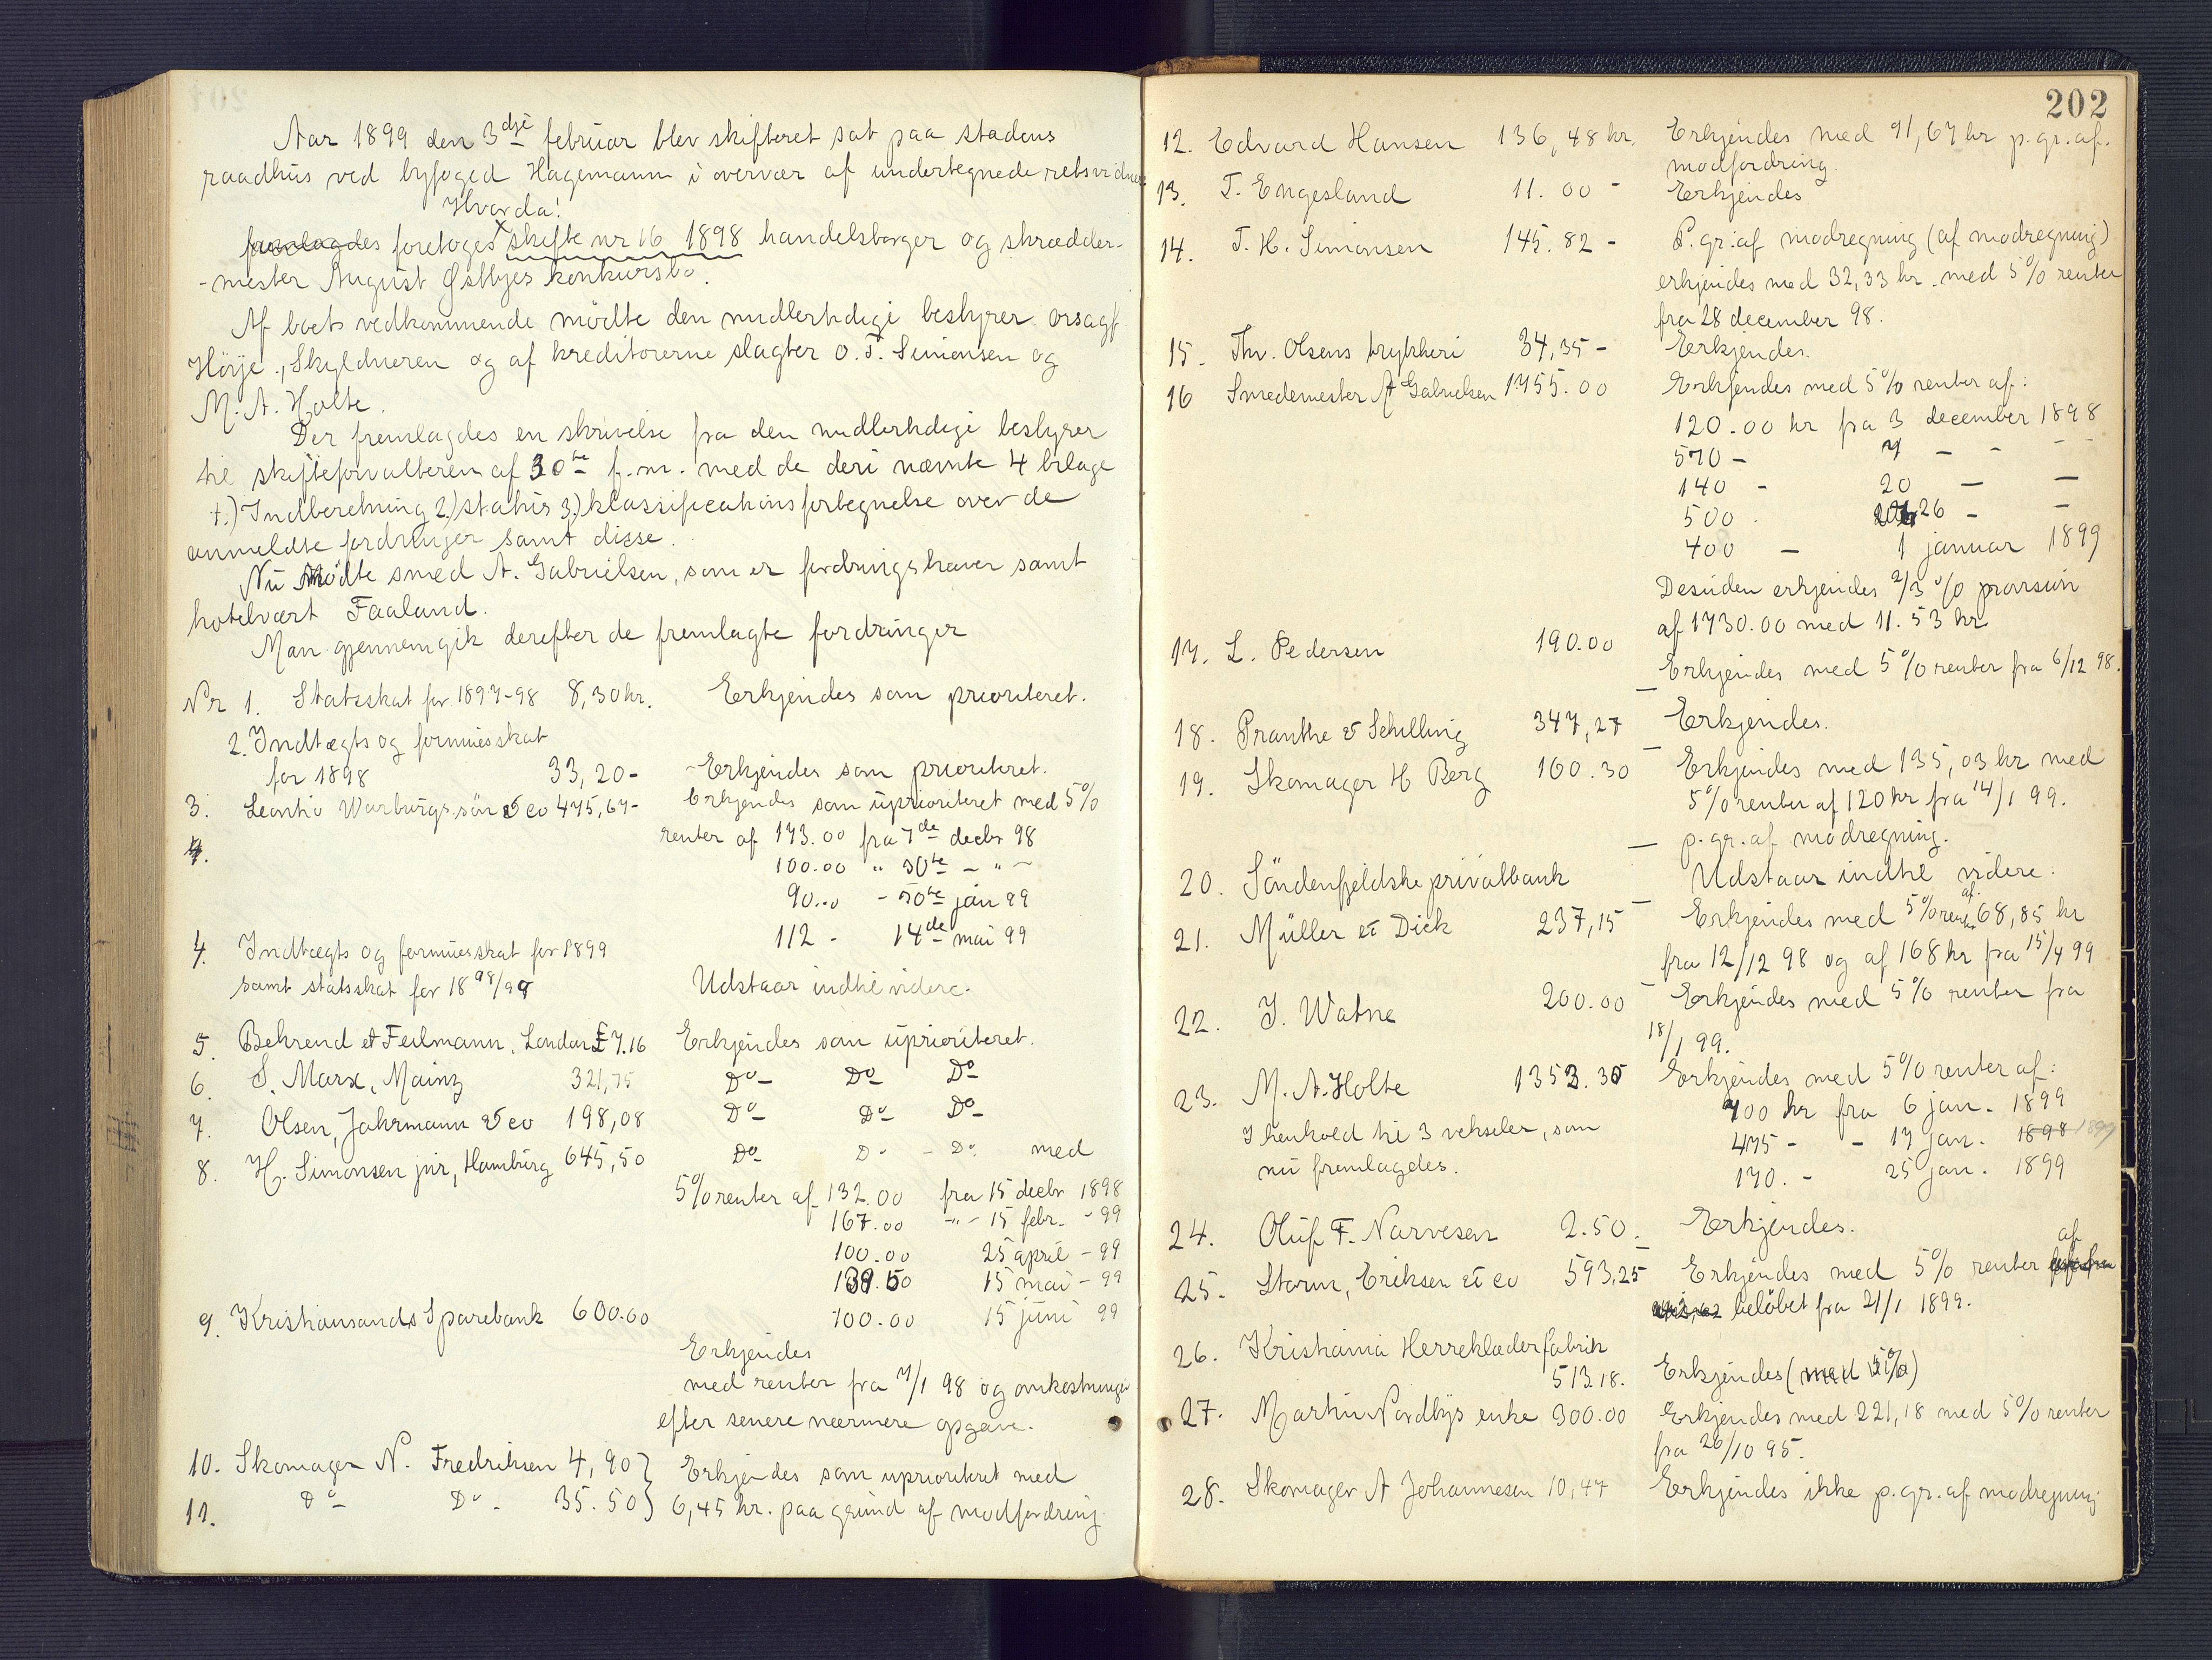 Aar 1899 den 3dje februar blev skifteret sat paa stadens
raadhus ved byfoged Hagemann i overvær af undertegnede retsvidner
Hvorda!
fremlagdes foretoges skifte nr 16 1898 handelsborger og skrædder-
-mester August Østbyes konkursbo.
Af boets vedkommende mödte den midlertidige bestyrer orsagf.
Höye, Skyldneren og af kreditorerne slagter O. T. Simonsen og
M. A. Holte.
Der fremlagdes en skrivelse fra den midlertidige bestyrer
til skifteforvalteren af 30te f.m. med de deri nævnte 4 bilage
1.) Indberetning 2) status 3) klassifications fortegnelse over de
anmeldte fordringer samt disse.
Nu mödte smed A. Gabrielsen, som er fordringshaver samt
hotelvært Faaland.
Man gjennemgik derefter de fremlagte fordringer
Nr 1. Statsskat for 1897-98 8,30 kr. Erkjendes som prioriteret.
2. Indtægts og formuesskat
for 1898 33,20- Erkjendes som prioriteret.
3. Leontin Warburgs sön & co 475,67- Erkjendes som uprioriteret med 5%
4. renter af 173.00 fra 7de decbr 98
100.00 " 30te - " -
90.00 - 30te jan 99
112 - 14de mai 99
4. Indtægts og formuesskat for 1899
samt statsskat for 1898/99 Udstaar indtil videre.
5. Behrend et Feilmann, London £ 7.16 Erkjendes som uprioriteret.
6. S. Marx, Mainz 321,75 Do Do Do
7. Olsen, Jahrmann & co 198,08 Do Do Do
8. H. Simonsen jnr, Hamburg 645,50 Do Do - Do med
5% renter af 132.00 fra 15 decbr 1898
167.00 -"- 15 febr. - 99
100.00 25 april - 99
139.50 15 mai - 99
100.00 15 juni 99
9. Kristiansands Sparebank 600.00
Erkjendes
med renter fra 7/1 98 og omkostninger
efter senere nærmere opgave.
10. Skomager N. Fredriksen 4,90} Erkjendes som uprioriteret med
11. Do Do - 35.50} 6,45 kr. paa grund af modfordring
202
12. Edvard Hansen 136,48 kr. Erkjendes med 91,67 kr p.gr.af.
modfordring.
13. T. Engesland 11.00 - Erkjendes
14. T. H. Simonsen 145.82 - P.gr.af modregning (af modregning)
erkjendes med 32,33 kr. med 5% renter
fra 28 december 98.
15. Thv. Olsens trykkeri 34,35 - Erkjendes.
16 Smedemester A Gabrielsen 1755.00 Erkjendes med 5% renter af:
120.00 kr fra 3 december 1898
570 - 7 - - - -
140 - 20 - -
500 . 26 - -
400 - 1 januar 1899
Desuden erkjendes 2/3 % provision
af 1730.00 med 11.53 kr
17. L. Pedersen 190.00 Erkjendes med 5% renter fra 6/12 98.
18. Pranthe & Schilling 347,27 - Erkjendes.
19. Skomager H Berg 160.30 - Erkjendes med 135,03 kr med
5% renter af 120 kr fra 14/1 99.
p.gr.af modregning.
20. Söndenfjeldske privatbank - Udstaar indtil videre.
21. Müller et Dick 237,15 - Erkjendes med 5% renter af 68,85 kr
fra 12/12 98 og af 168 kr fra 15/4 99
22. J. Watne 200.00 - Erkjendes med 5% renter fra
18/1 99.
23. M. A. Holte 1353.35 Erkjendes med 5% renter af:
700 kr fra 6 jan. 1899
I henhold til 3 veksler, som 475 - - 17 jan. 1898 1899
nu fremlagdes. 170. - 25 jan. 1899
24. Oluf F. Narvesen 2.50. Erkjendes.
25. Storm, Eriksen et co 593,25 - Erkjendes med 5% renter af
belöbet fra 21/1 1899.
26. Kristiania Herreklæderfabrik
513.18. Erkjendes (med 5%)
27. Martin Nordbys enke 300.00 Erkjendes med 221,18 med 5% renter
fra 26/10 95.
28. Skomager A Johannesen 10,47 Erkjendes ikke p.gr.af modregning